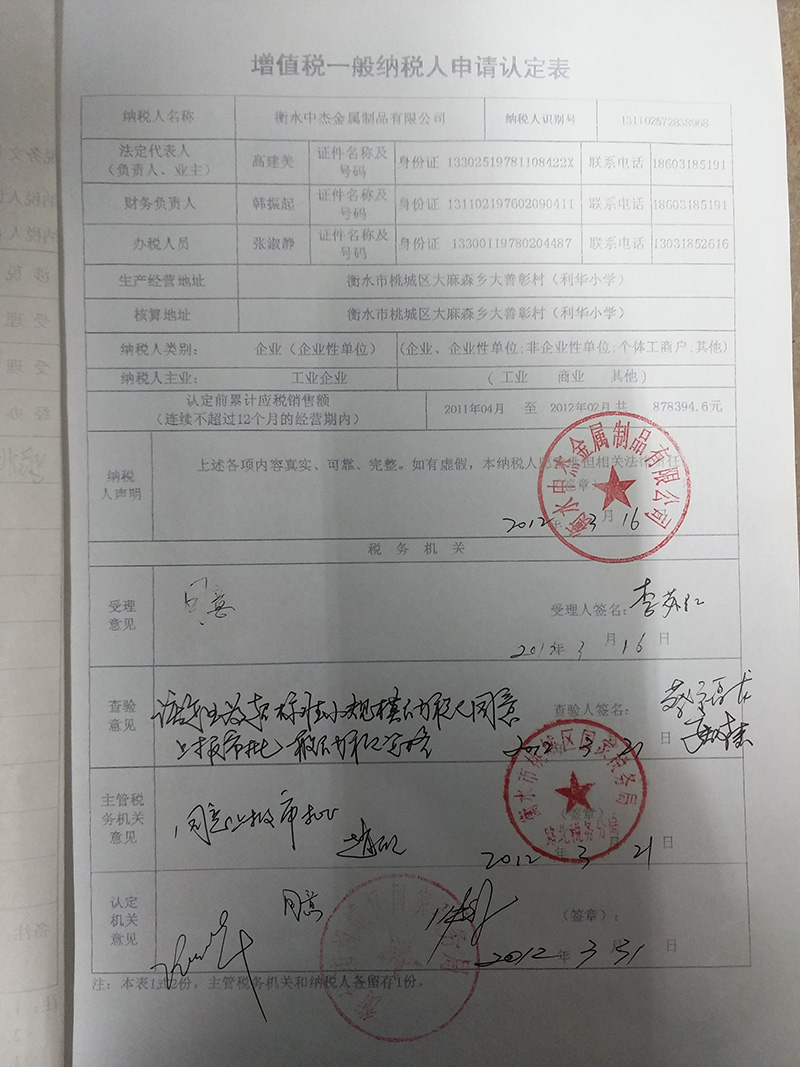 增值税一般纳税人申请认定表
纳税人名称 衡水中杰金属制品有限公司 纳税人识别号 131102572838968
法定代表人（负责人、业主） 高建美 证件名称及号码 身份证 13302519781108422X 联系电话 18603185191
财务负责人 韩振起 证件名称及号码 身份证 131102197602090411 联系电话 18603185191
办税人员 张淑静 证件名称及号码 身份证 13300119780204487 联系电话 13031852616
生产经营地址 衡水市桃城区大麻森乡大善彰村（利华小学）
核算地址 衡水市桃城区大麻森乡大善彰村（利华小学）
纳税人类别： 企业（企业性单位） (企业、企业性单位;非企业性单位;个体工商户;其他)
纳税人主业： 工业企业 （工业 商业 其他）
认定前累计应税销售额（连续不超过12个月的经营期内） 2011年04月 至 2012年02月 共 878394.6元
纳税人声明 上述各项内容真实、可靠、完整。如有虚假，本纳税人愿意承担相关法律责任
（签章）
2012年 3月 16
衡水中杰金属制品有限公司
税务机关
受理意见 同意 受理人签名：
2012年 3月 16日
查验意见 同意 查验人签名：
上报市批
2012 3 21日
主管税务机关意见 同意上报市批
（签章）
2012年 3月 21日
衡水市桃城区国家税务局
路北税务分局
认定机关意见 同意 （签章）：
2012年 3月 31日
注：本表1式2份，主管税务机关和纳税人各留存1份。